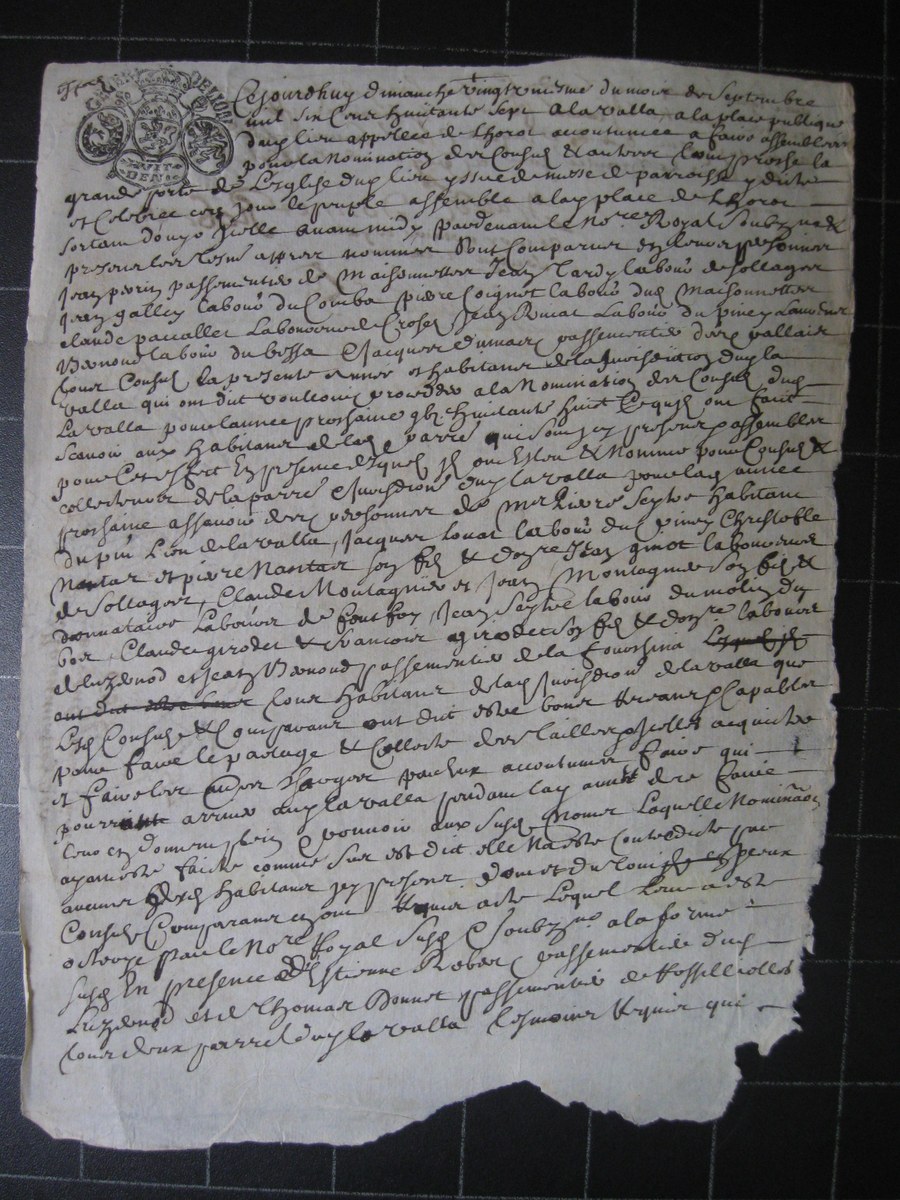 Cejourdhuy dimanche vingt uniesme du mois de Septembre
mil six cens huitante sept a lavalla, a la place publique
dud lieu appellee de Lhorot accoustumee a faire assemblees
pour la Nomination des Consulz & autres proche la
grande porte de Lesglise dud lieu yssue de messe de parroisse y dicte
et Celebree ced jour le peuple assemblé a lad place de Lhorot
sortant d'ouyr icelle avant midy pardevant le Nore Royal Soubzne &
presens les tesm apres nommes Sont Comparus en leurs personnes
Jean perrin passementier de Maisonnettes Jean tardy labour de Sollages
Jean galley labour du Combe pierre Coignet labour dud Maisonnettes
claude paccallet Laboureur de Croses Jean Rivat Labour du piney Laurens
Vernond labour du bessa & Jacques dumaix passementier
tous Consulz la presente annee et habitans de la Jurisdiction dud la
valla qui ont dit vouloir proceder a la Nomination des Consulz dud
Lavalla pour lannee prochaine gbz huitante huit Lequel ont fait
scavoir aux habitans de lad parre qui sont icy presens & assembles
pour Cest effect En presence desquelz ilz ont Esleu & Nomme pour Consulz &
collecteurs de la parre & Jurisdion dud lavalla pour lad annee
prochaine assavoir des personnes de Mre Pierre Seytre habitant
du pnt Lieu de lavalla, Jacques Louat labour du piney Christofle
Nantas et pierre Nantas son filz & donre Jean ginot laboureur
de Sollages, Claude Montagnier et Jean Montagnier son filz &
donnataire Labours de fontfoy, Jean Seytre labour du molin du
bos, Claude girodet & francois girodet son filz & donre labours
de luzernod et Jean Vernond passementier de la fourchina Lesquelz
ont dit estre tous tous habitans de lad Jurisdion de lavalla que
Lesd Consulz & Comparans ont dit estre bons & Capables
pour faire le partage & Collecte des tailles & icelles acquitter
et faire les autres Charges quilz ont accoustumes faire qui
pourront arriver aud lavalla pendant lad annee de ce faire
leur en donnent plein pouvoir aux susd Nomes Laquelle Nominaon
ayant este faite comme sus est dit elle Na este Contredicte par
aucuns desd habitans icy presens dont et du tout lesd
Consulz Comparans en ont requis acte Lequel leur a este
octroye par le Nore Royal Susd & Soubzne a la forme
Susd En presence de Estienne Robert passementier dud
Luzernod et de thomas Bonnet passementier de Rossillolles
tous deux parre dud lavalla tesmoins requis qui